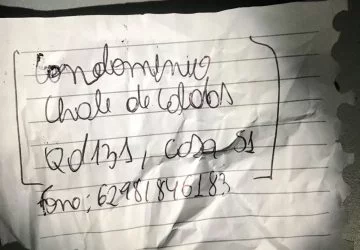 Condominio,
Chale de Caldas
Qd 131, casa 51
fono: 62981846183